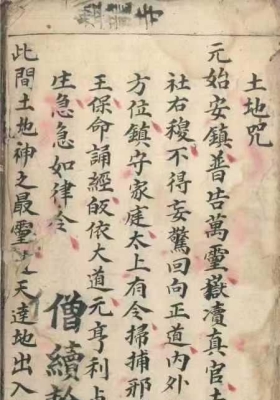 土地咒
元始安鎮普告萬靈嶽瀆真官土
社右稷不得妄驚回向正道內外
方位鎮守家庭太上有令掃捕邪
王保命誦經皈依大道元亨利
生急急如律令 僧續
此間土地神之最靈 天達地出入